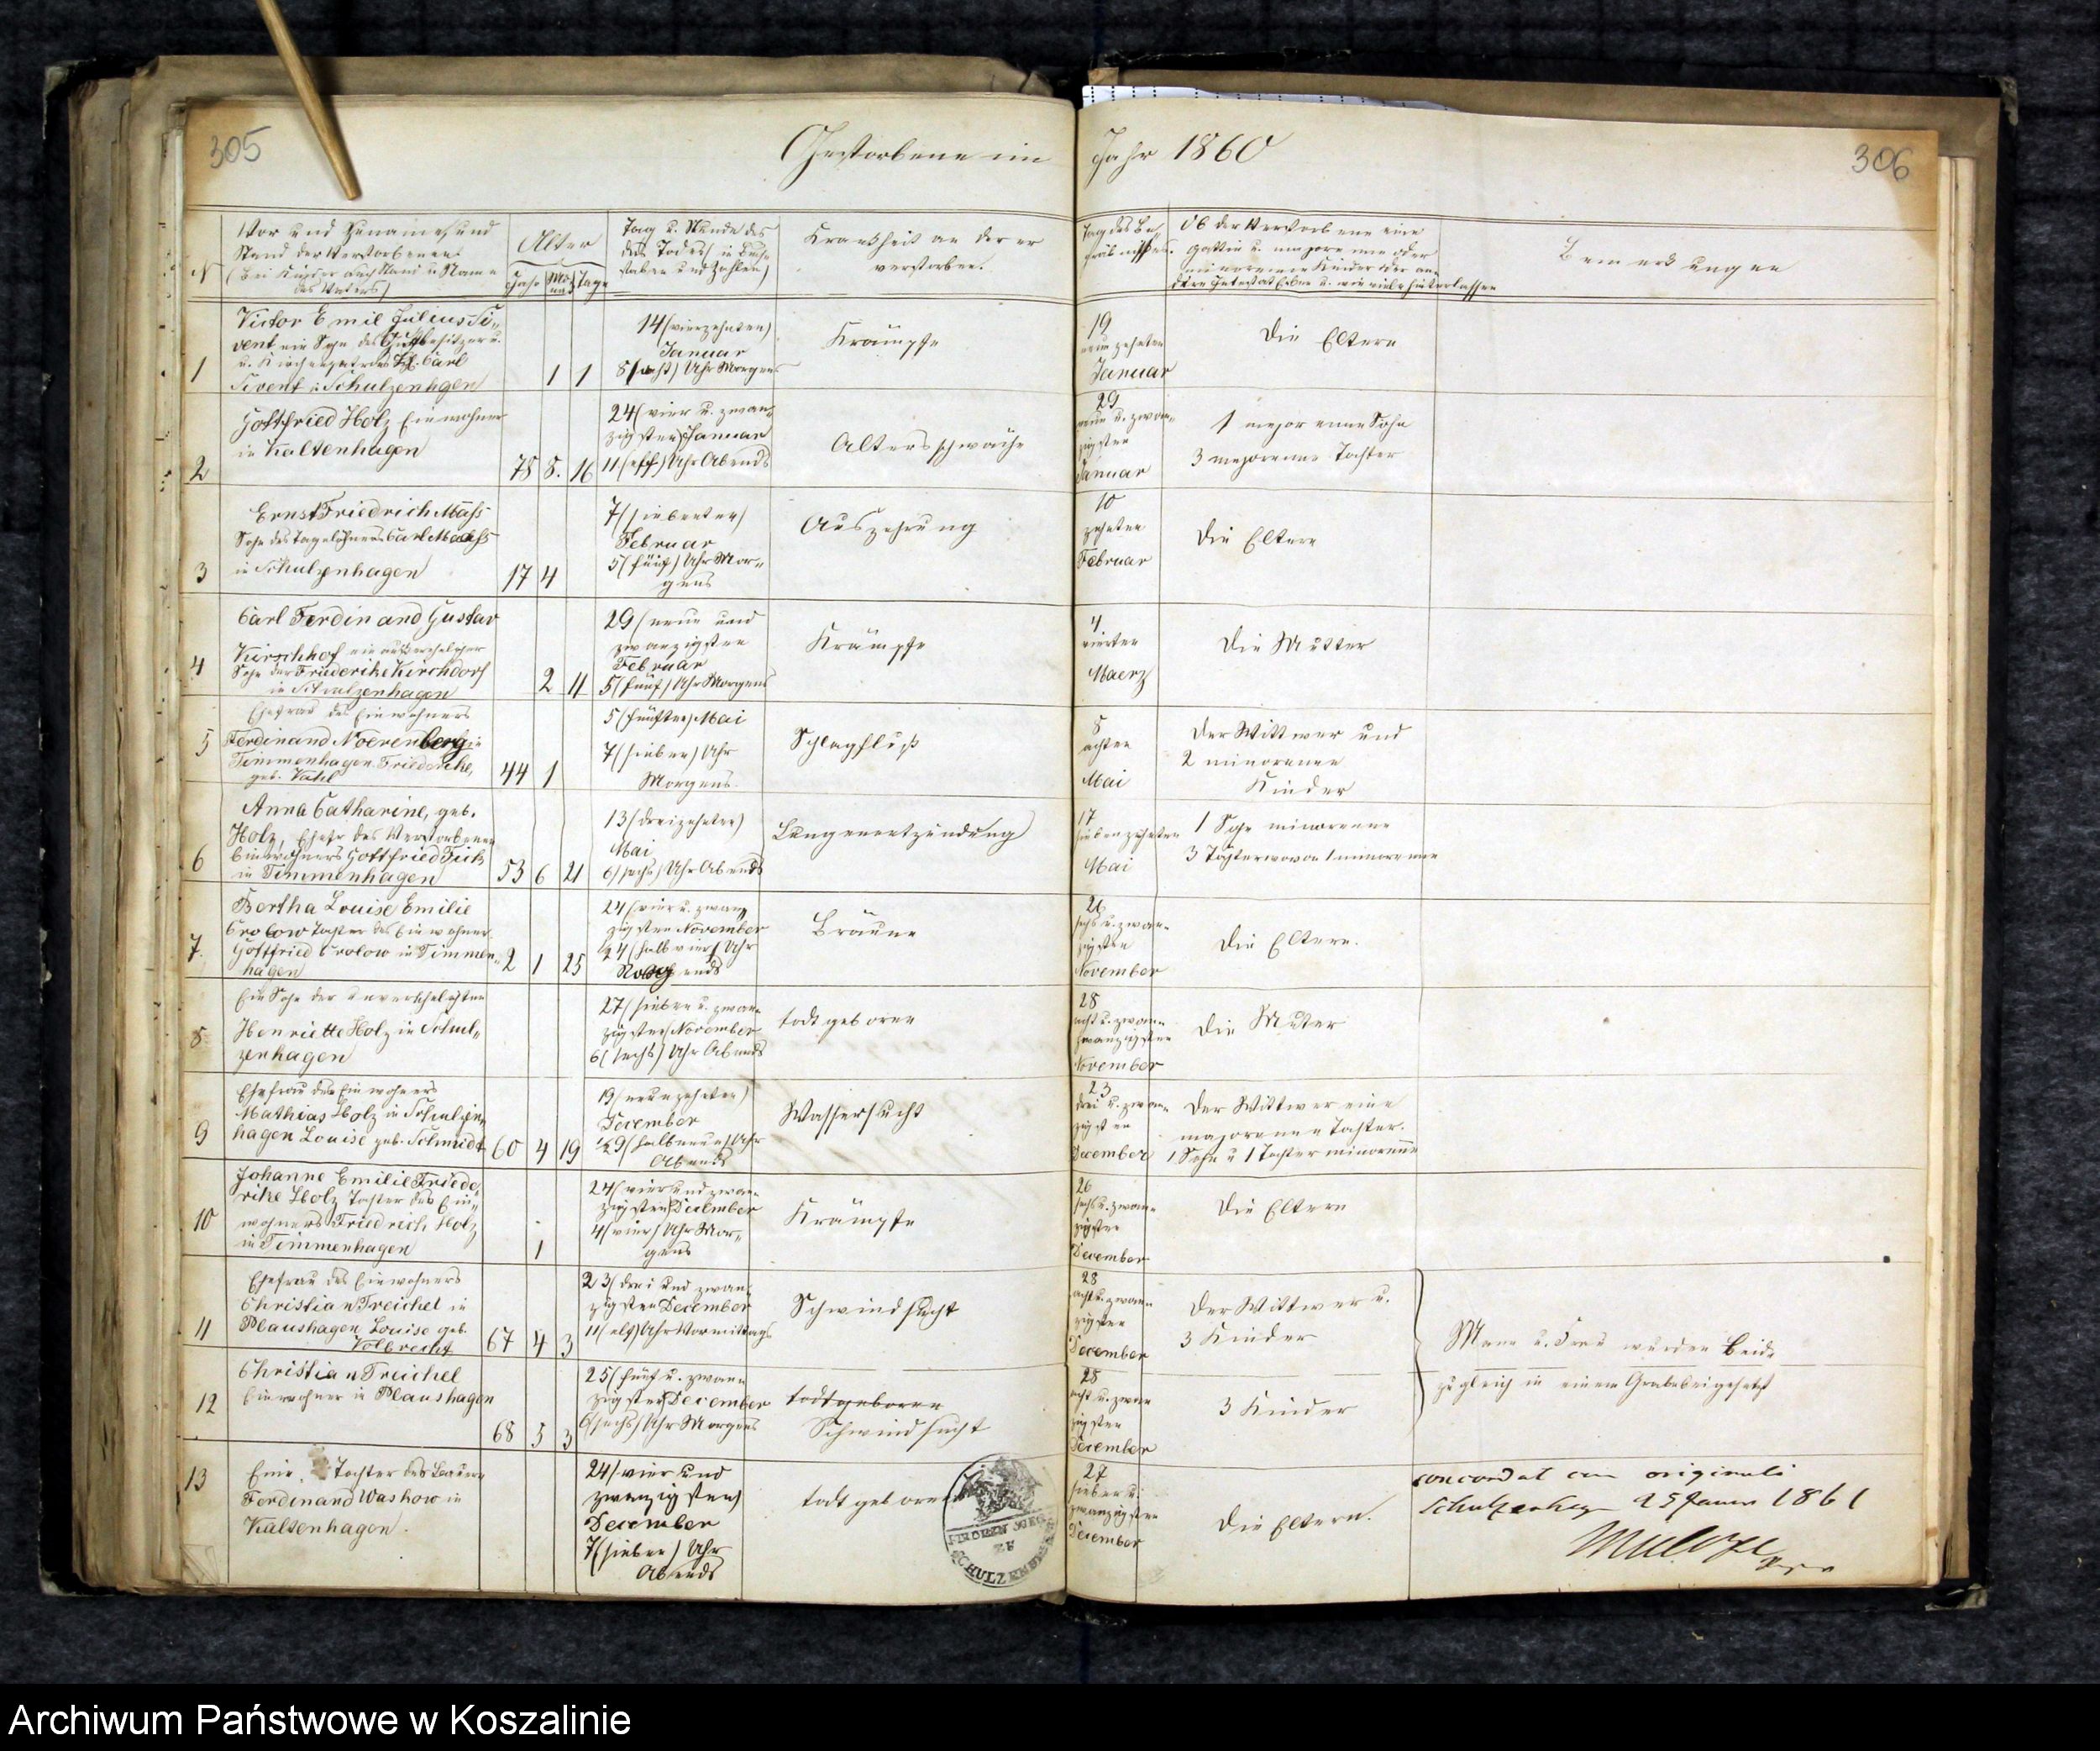 305
Gestorbene im Jahr 1860
306
N
Vor und Zuname, und
Stand der Verstorbenen
(bei Kinder auch Stand u Name
des Vaters)
Alter
Jahr
Mo
nat
Tage
Tag u. Stunde des
des Todes (in Buch-
staben und Zahlen)
Krankheit an der er
verstorben.
Tag des Be-
gräbnisses.
Ob der Verstorbene eine
Gattin u. majorenne oder
minorenne Kinder oder an-
dere Intestat Erben u. wie viele hinterlassen
Bemerkungen
1
Victor Emil Julius Si-
vent ein Sohn des Gutsbesitzer u.
u. Kirchenpatron Carl
Sivent in Schulzenhgen
1 1
14 (vierzehnten)
Januar
8 (acht) Uhr Morgens
Krämpfe
19
neunzehnten
Januar
Die Eltern
2
Gottfried Holz Einwohner
in Kaltenhagen
78 8. 16
24 (vier u. zwan-
zigsten) Januar
11 (elf) Uhr Abends
Altersschwäche
29
neun u. zwan-
zigsten
Januar
1 majorenne Sohn
3 majorenne Tochter
3
Ernst Friedrich Mass
Sohn des Tagelöhners Carl Maass
in Schulzenhagen
17 4
7 (siebenten)
Februar
5 (fünf) Uhr Mor-
gens
Auszehrung
10
zehnten
Februar
Die Eltern
4
Carl Ferdinand Gustav
Kirschhof ein außerehelicher
Sohn der Friederike Kirchdorf
in Schulzenhagen
2 11
29 (neun und
zwanzigsten
Februar
5 (fünf) Uhr Morgens
Krämpfe
4
vierten
Maerz
Die Mutter
5
Ehefrau des Einwohners
Ferdinand Noerenberg in
Timmenhagen. Friedericke,
geb. Vahl
44 1
5 (fünften) Mai
7 (sieben) Uhr
Morgens.
Schlagfluß
8
achten
Mai
Der Wittwer und
2 minorenne
Kinder
6
Anna Catharine, geb.
Holz, Ehefr des Verstorbenen
Einwohners Gottfried Fick
in Timmenhagen
53 6 21
13 (dreizehnten)
Mai
6 (sechs) Uhr Abends
Lungenentzündung
17
siebenzehnten
Mai
1 Sohn minorenne
3 Töchter wovon 1 minorenne
7.
Bertha Louise Emilie
Crolow Tochter des Einwohner
Gottfried Crolow in Timmen-
hagen
2 1 25
24 (vier u. zwanz
zigsten November
1/24 (halb vier) Uhr
Abends
Bräune
26
sechs u. zwan-
zigsten
November
Die Eltern.
8
Ein Sohn der unverehelichten
Henriette Holz in Schul-
zenhagen
27 (sieben u. zwan-
zigsten) November
6 (sechs) Uhr Abends
todt geboren
28
acht u. zwan-
zwanzigsten
November
Die Mutter
9
Ehefrau des Einwohners
Mathias Holz in Schulzen-
hagen Louise geb. Schmidt
60 4 19
19 (neunzehnten)
December
1/29 (halb neun) Uhr
Abends
Wassersucht
23
drei u. zwan-
zigsten
December
Der Wittwer eine
majorenne Tochter.
1 Sohn u 1 Tochter minorenne
10
Johanne Emilie Friede-
rike Holz Tochter des Ein-
wohners Friedrich Holz
in Timmenhagen
1
24 (vier und zwan-
zigsten) December
4 (vier) Uhr Mor-
gens
Krämpfe
26
sechs u. zwan-
zigsten
December
Die Eltern
11
Ehefrau des Einwohners
Christian Treichel in
Plaushagen Louise geb.
Volbrecht
67 4 3
23 (drei und zwan-
zigsten December
11 (elf) Uhr Vormittags
Schwindsucht
28
acht u. zwan-
zigsten
December
Der Wittwer u.
3 Kinder
Mann u. Frau wurden Beide
zugleich in einem Grabe beigesetzt
12
Christian Treichel
Einwohner in Plaushagen
68 5 3
25 (fünf u. zwan-
zigsten) December
6 (sechs) Uhr Morgens
todtgeboren
Schwindsucht
28
acht u. zwan-
zigsten
December
3 Kinder
13
Eine Tochter des Bauern
Ferdinand Waskow in
Kaltenhagen.
24 (vier und
zwanzigsten)
December
7 (sieben) Uhr
Abends
todt geboren
27
sieben u.
zwanzigsten
December
Die Eltern.
concordat cum originali
Schulzenhagen 25 Januar 1861
ZU
SCHULZENHAGEN
Archiwum Państwowe w Koszalinie